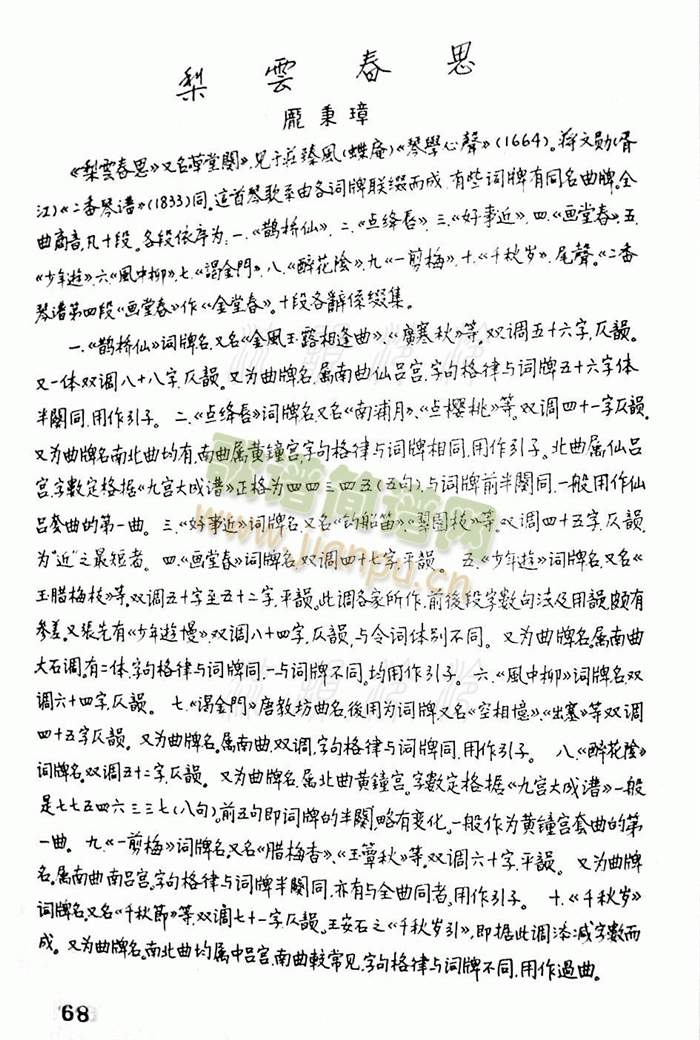 梨雲春思
龎秉璋
《梨雲春思》又名《草堂閒》,見于莊臻風(蝶庵)《琴學心聲》(1664)。蒋文勋(胥
江)《二香琴谱》(1833)同。这首琴歌系由各词牌联缀而成,有些词牌有同名曲牌。全
曲商音,凡十段。各段依序为:一.《鹊桥仙》,二.《点绛唇》,三.《好事近》,四.《画堂春》,五.
《少年遊》,六.《風中柳》,七.《謁金門》,八.《醉花陰》,九.《一剪梅》,十.《千秋岁》,尾聲。《二香
琴谱第四段《画堂春》作《金堂春》。十段各辭係缀集。
一.《鹊桥仙》词牌名,又名《金風玉露相逢曲》、《廣寒秋》等。双调五十六字,仄韻。
又一体双调八十八字,仄韻。又为曲牌名,属南曲仙吕宫,字句格律与词牌五十六字体
半闋同,用作引子。二.《点绛唇》词牌名,又名《南浦月》、《点樱桃》等。双调四十一字仄韻。
又为曲牌名南北曲均有,南曲属黄鐘宫,字句格律与词牌相同,用作引子。北曲属仙吕
宫,字數定格据《九宫大成谱》正格为四四三四五(五句),与词牌前半闋同,一般用作仙
吕套曲的第一曲。三.《好事近》词牌名,又名《钓船笛》、《翠圆枝》等,双调四十五字,仄韻,
为"近"之最短者。四.《画堂春》词牌名,双调四十七字,平韻。五.《少年遊》词牌名,又名《
玉腊梅枝》等,双调五十字至五十二字,平韻。此调各家所作,前後段字數句法及用韻,颇有
参差。又張先有《少年遊慢》,双调八十四字,仄韻,与令词体别不同。又为曲牌名。属南曲
大石调,有二体,字句格律一与词牌同,一与词牌不同,均用作引子。六.《風中柳》词牌名,双
调六十四字,仄韻。七.《謁金門》唐教坊曲名,後用为词牌,又名《空相憶》、《出塞》等,双调
四十五字仄韻。又为曲牌名。属南曲,双调,字句格律与词牌同,用作引子。八.《醉花陰》
词牌名。双调五十二字,仄韻。又为曲牌名,属北曲黄鐘宫。字數定格据《九宫大成谱》一般
是七七五四六三三七(八句)。前五句即词牌的半闋,略有变化。一般作为黄鐘宫套曲的第
一曲。九.《一剪梅》词牌名。又名《腊梅香》、《玉簟秋》等。双调六十字,平韻。又为曲牌
名。属南曲南吕宫。字句格律与词牌半闋同,亦有与全曲同者。用作引子。十.《千秋岁》
词牌名,又名《千秋節》等,双调七十一字,仄韻。王安石之《千秋岁引》,即据此调添减字數而
成。又为曲牌名。南北曲均属中吕宫,南曲較常見,字句格律与词牌不同,用作過曲。
歌谱简谱网
www.jianpu.cn
68